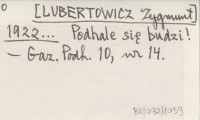 [LUBERTOWICZ Zygmunt]
1922... Podhale się budzi!
– Gaz. Podh. 10, nr 14.